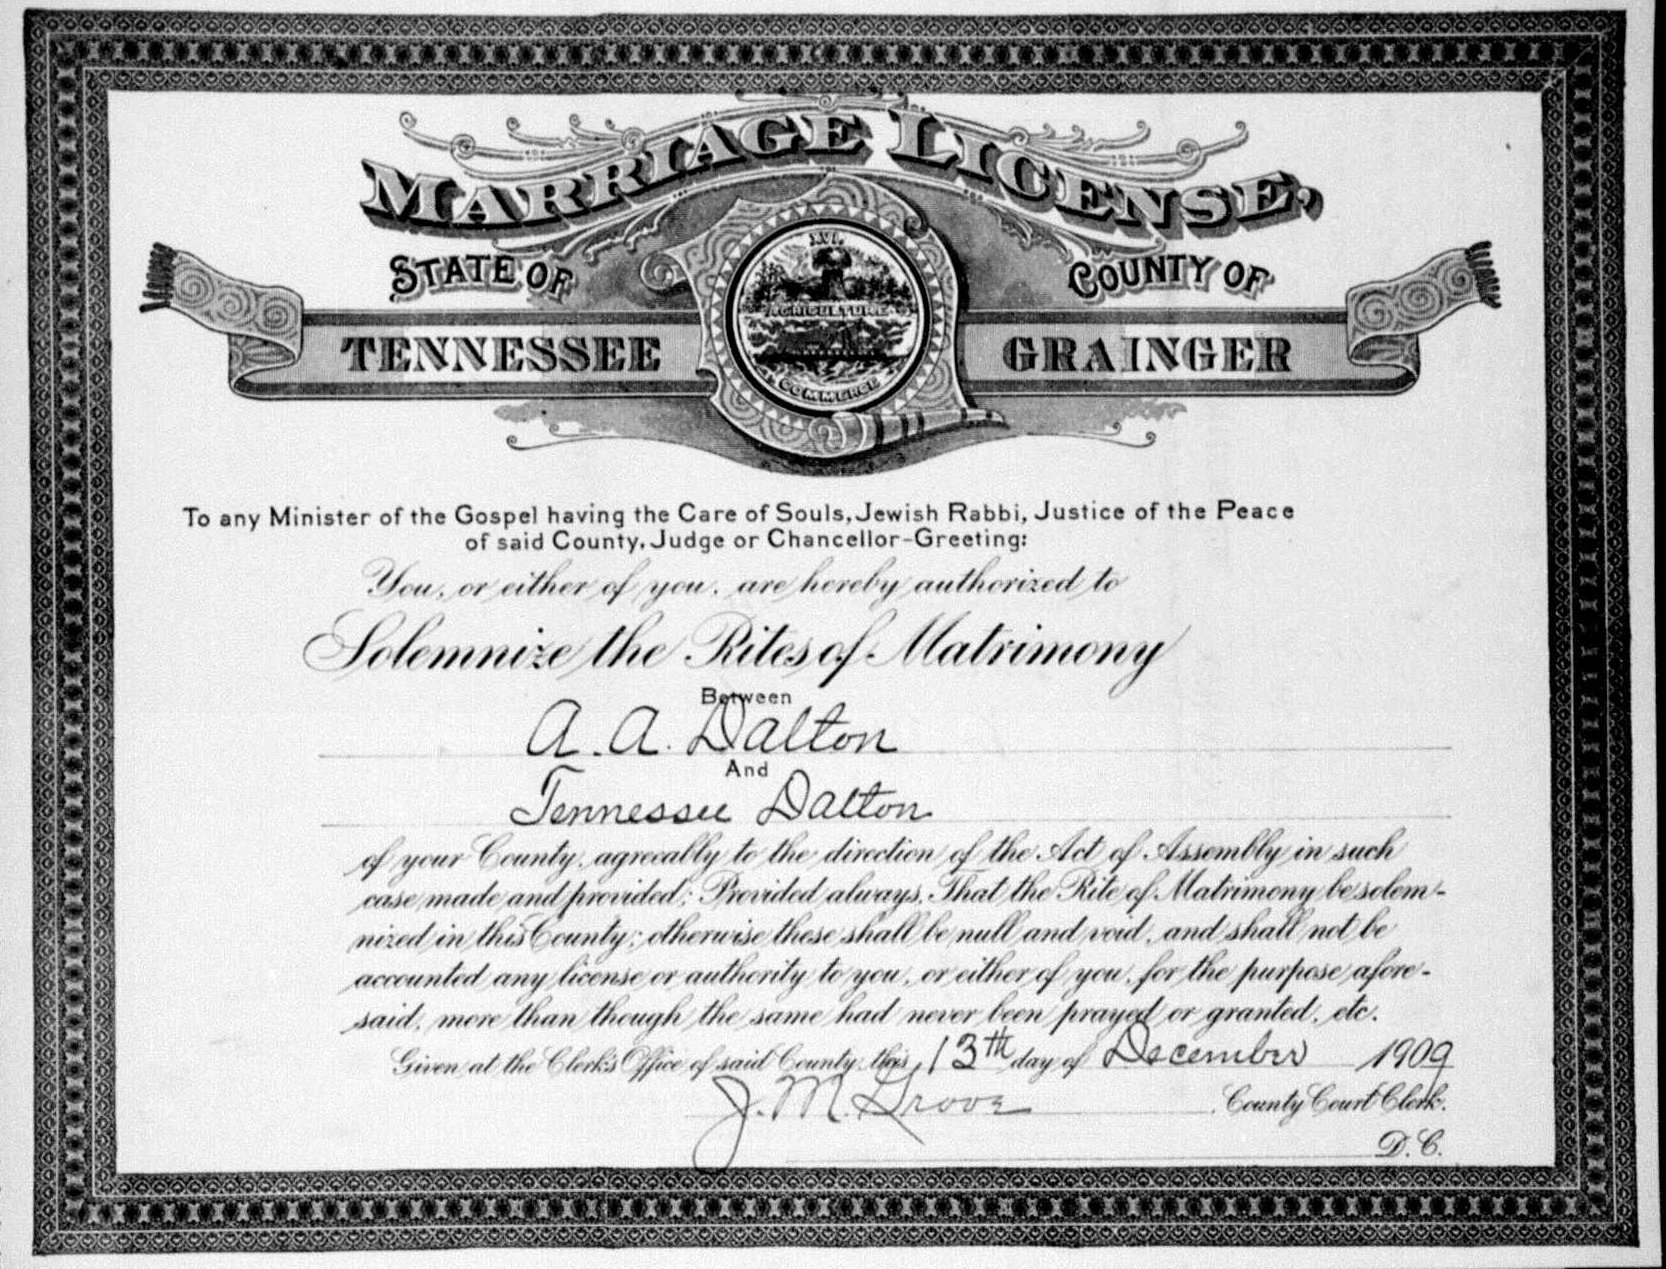 MARRIAGE LICENSE,
STATE OF
TENNESSEE
XVI.
AGRICULTURE
COMMERCE
COUNTY OF
GRAINGER
To any Minister of the Gospel having the Care of Souls, Jewish Rabbi, Justice of the Peace
of said County, Judge or Chancellor-Greeting:
You, or either of you, are hereby authorized to
Solemnize the Rites of Matrimony
Between
A. A. Dalton
And
Tennessee Dalton
of your County, agreeably to the direction of the Act of Assembly in such
case made and provided; Provided always, That the Rite of Matrimony be solem-
nized in this County; otherwise these shall be null and void, and shall not be
accounted any license or authority to you, or either of you, for the purpose afore-
said, more than though the same had never been prayed or granted, etc.
Given at the Clerk's Office of said County, this 13th day of December 1909
J. M. Grove County Court Clerk.
D. C.